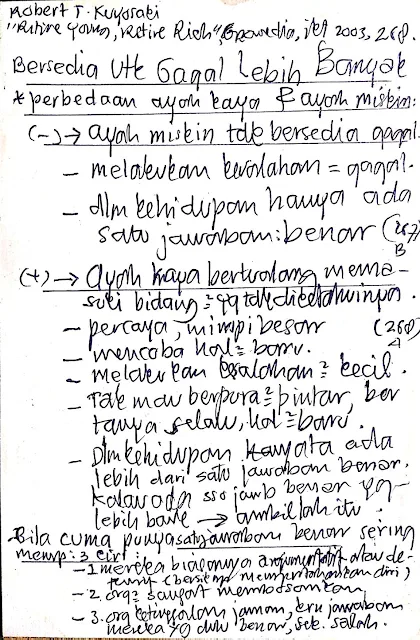 Robert T. Kuyosaki
"Retire Young, Retire Rich", Gramedia, jkt 2003, 268.
Bersedia Utk Gagal Lebih Banyak
* perbedaan ayah kaya & ayah miskin:
(-) → ayah miskin tdk bersedia gagal.
- melakukan kesalahan = gagal.
- dlm kehidupan hanya ada
satu jawaban: benar (267)
B
(+) → Ayah kaya bertualang mema-
suki bidang² yg tdk diketahuinya.
- percaya, mimpi besar (268)
A
- mencoba hal² baru.
- melakukan kesalahan² kecil.
- Tak mau berpura² pintar, ber
tanya selalu, hal² baru.
- Dlm kehidupan nyata ada
lebih dari satu jawaban benar.
Kalau ada jawb benar yg
lebih baik → ambillah itu.
- Bila cuma punya satu jawaban benar sering
memp: 3 ciri:
- 1 mereka biasanya argumentatif atau de-
fensif (bersikap mempertahankan diri)
- 2. org² sangat membosankan
- 3. org ketinggalan jaman, krn jawaban
mereka yg dulu benar, sek. salah.